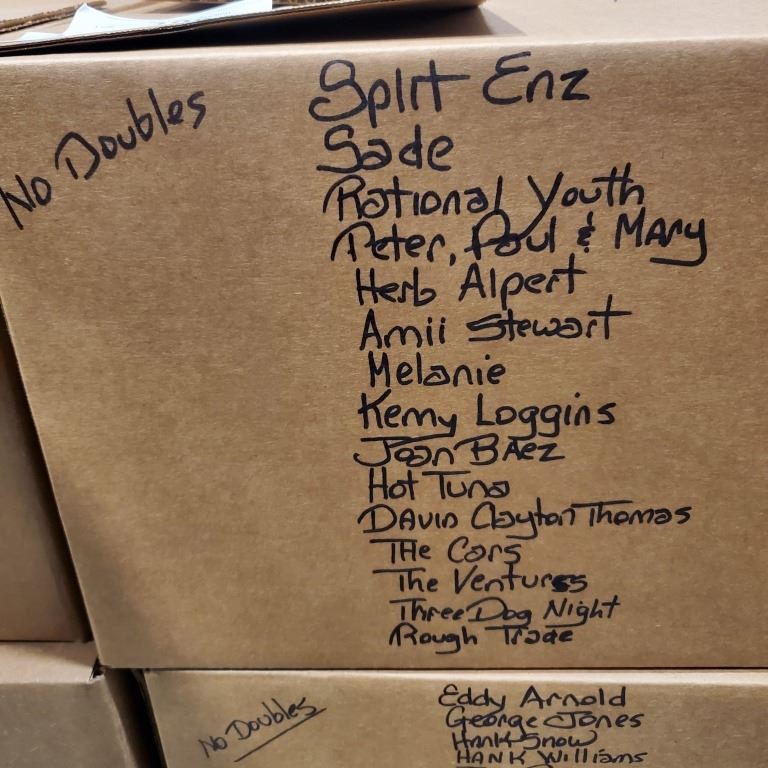 No Doubles
Split Enz
Sade
Rational Youth
Peter, Paul & Mary
Herb Alpert
Amii Stewart
Melanie
Kenny Loggins
Joan BAez
Hot Tuna
DAVID Clayton Thomas
THe Cars
The Ventures
Three Dog Night
Rough Trade
No Doubles
Eddy Arnold
George Jones
Hank Snow
HANK Williams